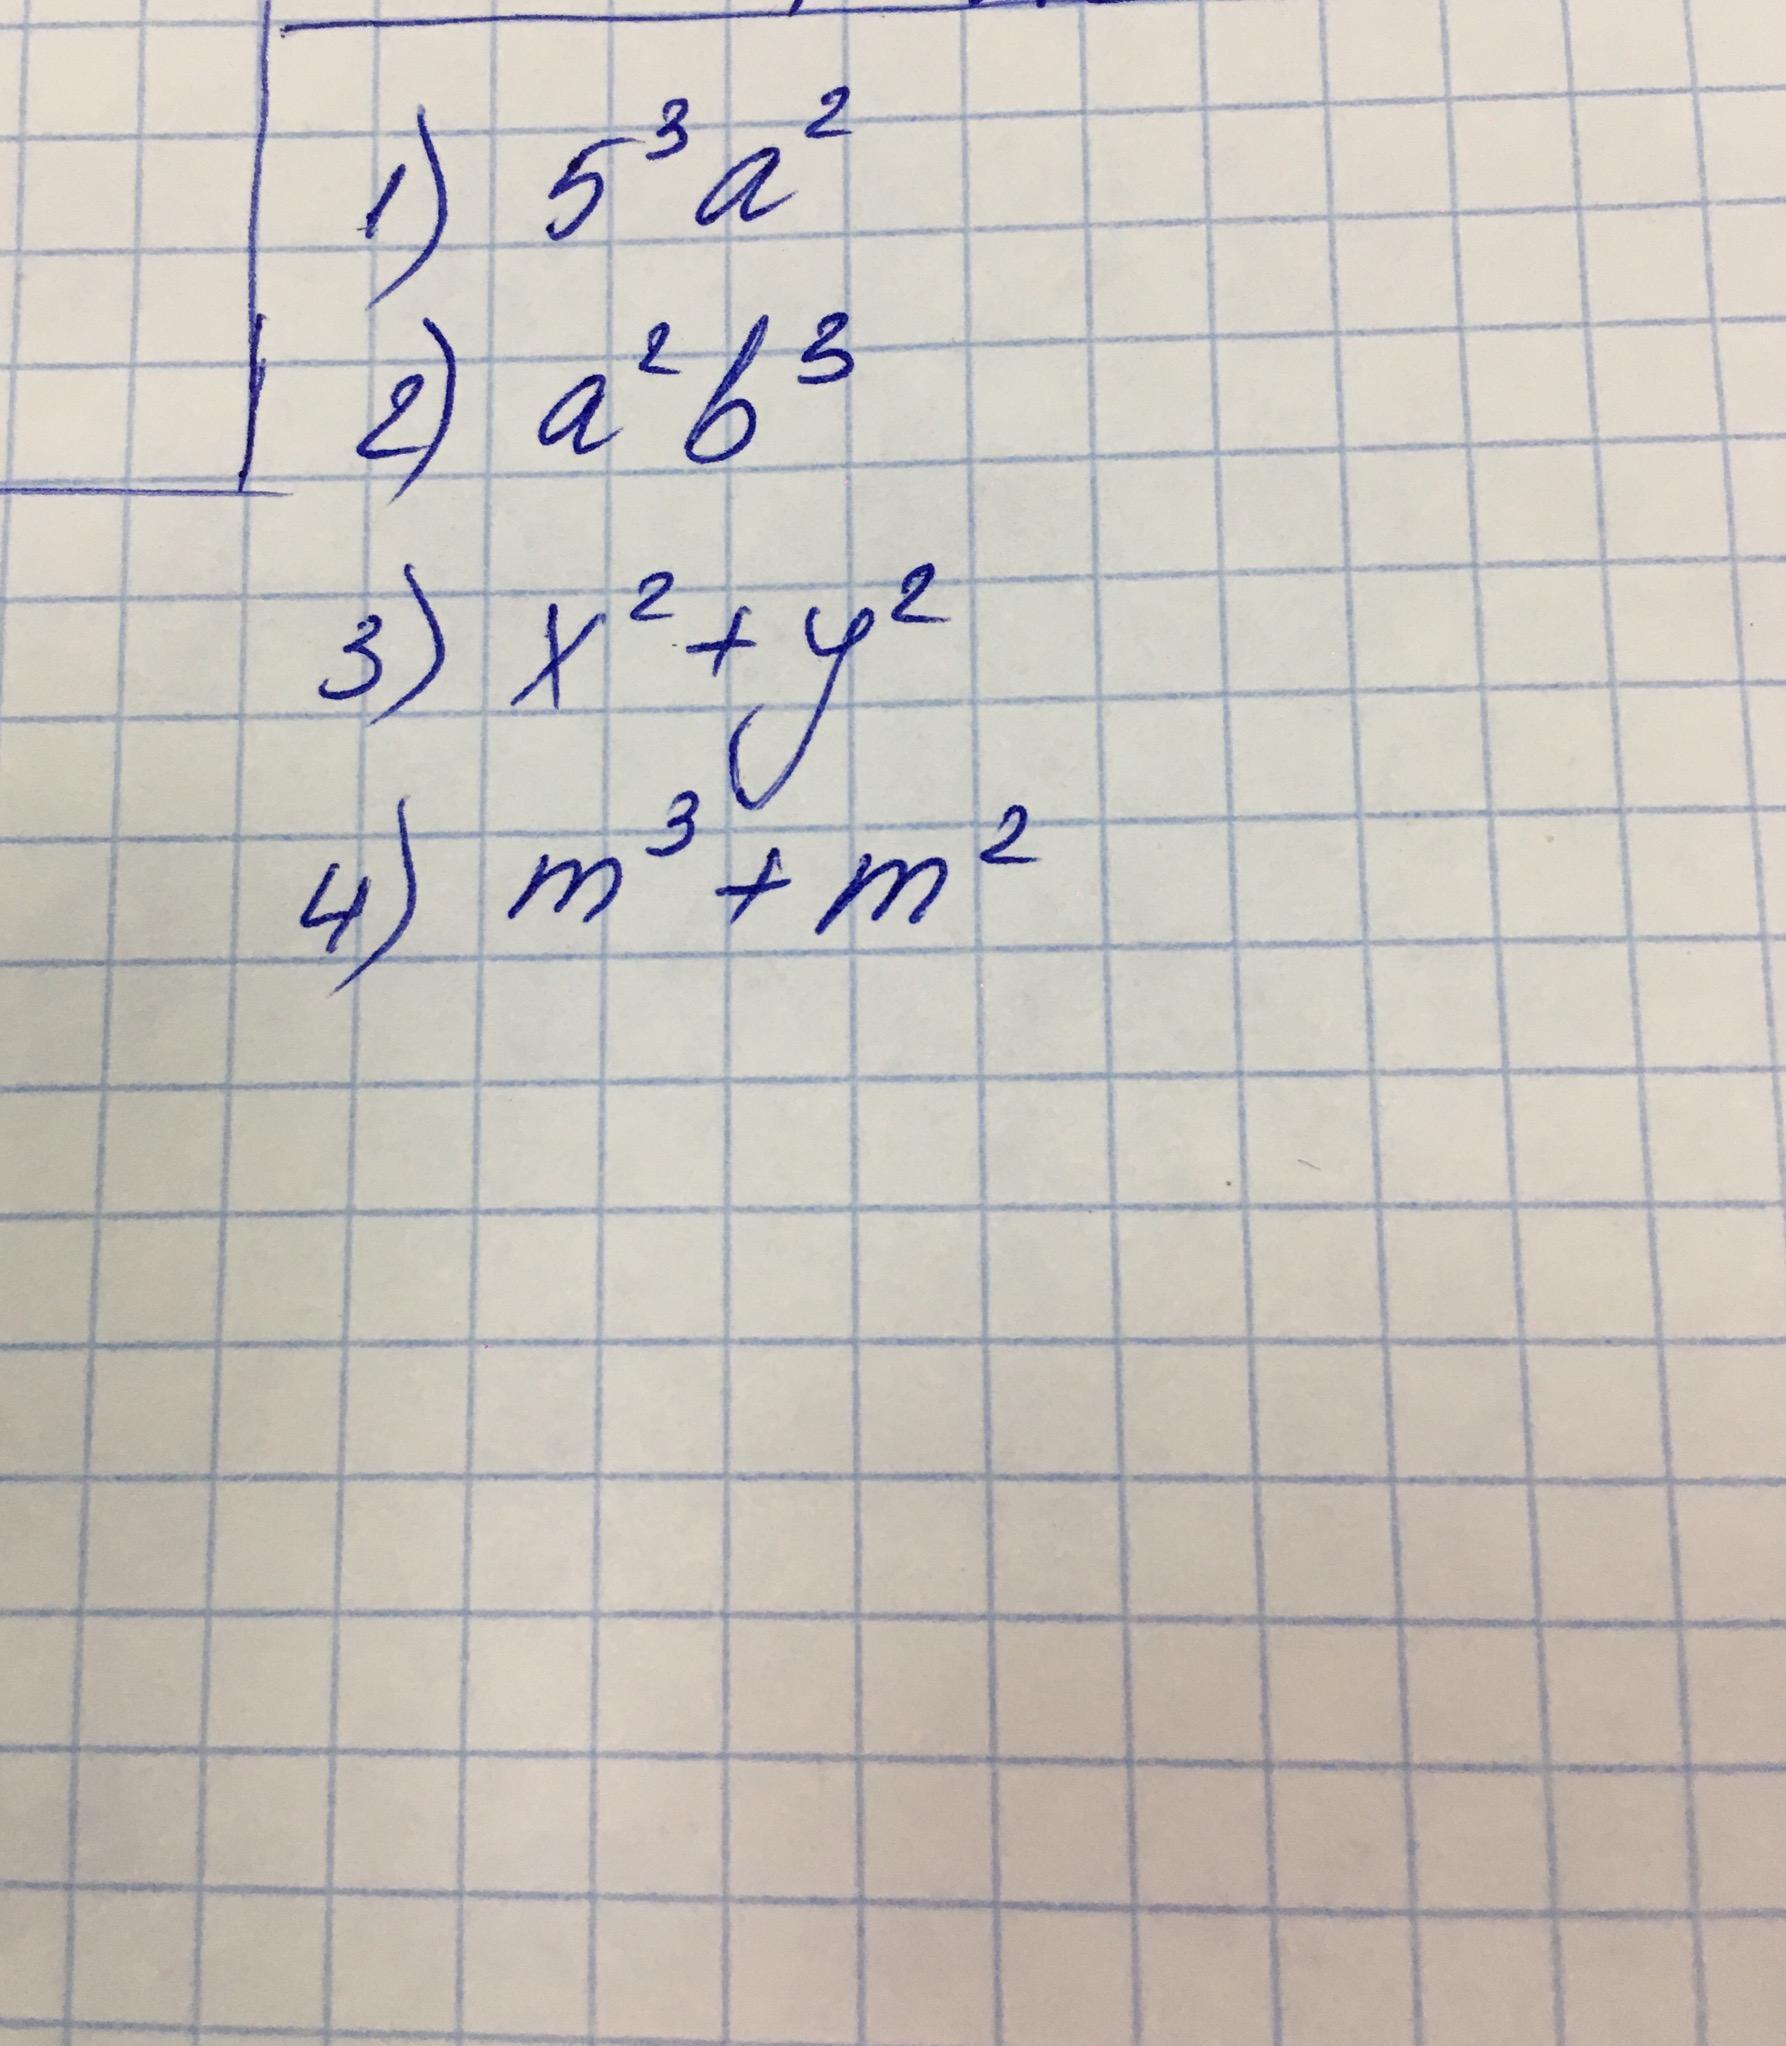 1) 5³a²
2) a²b³
3) x²+y²
4) m³+m²